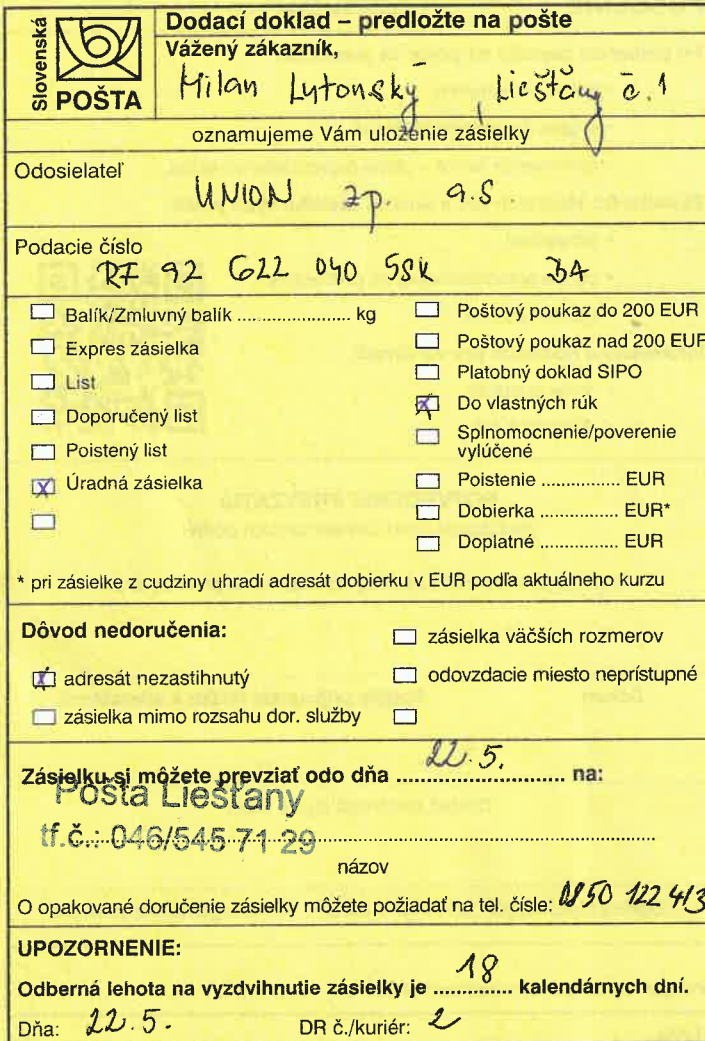 Slovenská
POŠTA
Dodací doklad – predložte na pošte
Vážený zákazník,
Milan Lytonský, Liešťany č.1
oznamujeme Vám uloženie zásielky
Odosielateľ
UNION zp. a.s
Podacie číslo
RF 92 622 040 5SK BA
Balík/Zmluvný balík ...................... kg
Expres zásielka
List
Doporučený list
Poistený list
x Úradná zásielka
Poštový poukaz do 200 EUR
Poštový poukaz nad 200 EUR
Platobný doklad SIPO
x Do vlastných rúk
Splnomocnenie/poverenie
vylúčené
Poistenie ............... EUR
Dobierka ............... EUR*
Doplatné ............... EUR
* pri zásielke z cudziny uhradí adresát dobierku v EUR podľa aktuálneho kurzu
Dôvod nedoručenia:
x adresát nezastihnutý
zásielka mimo rozsahu dor. služby
zásielka väčších rozmerov
odovzdacie miesto neprístupné
Zásielku si môžete prevziať odo dňa 22.5. na:
Pošta Liešťany
tf.č.: 046/545 71 29
názov
O opakované doručenie zásielky môžete požiadať na tel. čísle: 0850 122 413
UPOZORNENIE:
Odberná lehota na vyzdvihnutie zásielky je 18 kalendárnych dní.
Dňa: 22.5. DR č./kuriér: 2